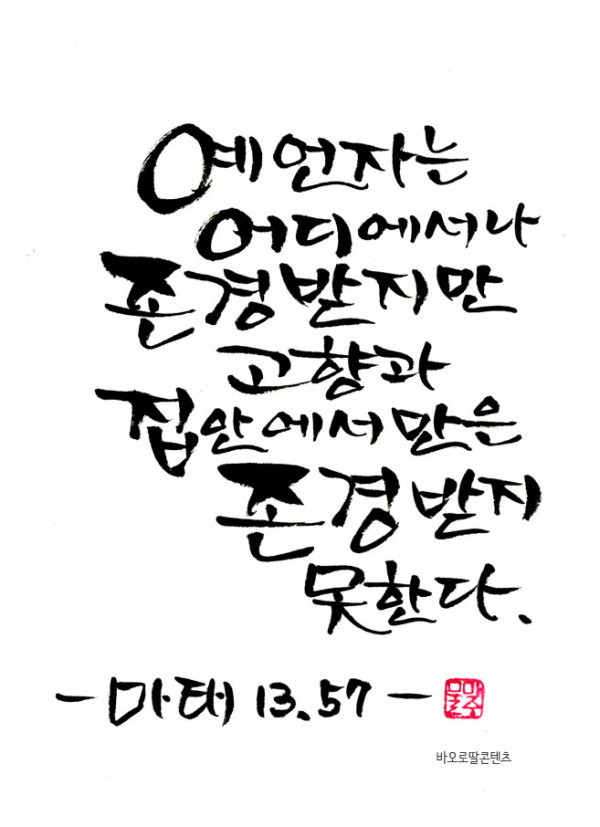 예언자는
어디에서나
존경받지만
고향과
집안에서만은
존경받지
못한다.
- 마태 13.57 -
바오로딸콘텐츠